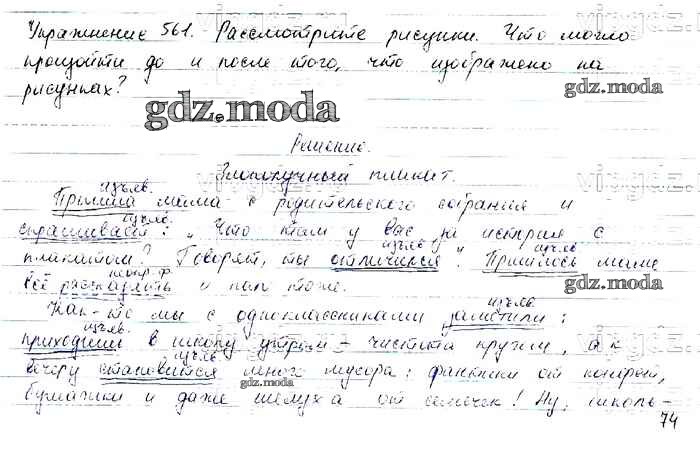 Упражнение 561. Рассмотрите рисунки. Что могло
произойти до и после того, что изображено на
рисунках?
gdz.moda
gdz.moda
Решение.
Злополучный плакат.
изъяв.
Пришла мама с родительского собрания и
изъяв.
спрашивает: „Что там у вас за история с
изъяв изъяв
плакатом? Говорят, ты отличился". Пришлось маме
неопр. ф.
всё рассказать и папе тоже.
gdz.moda
изъяв.
Как-то мы с одноклассниками заметили:
изъяв.
приходим в школу утром – чистота кругом, а к
изъяв.
вечеру становится много мусора: фантики от конфет,
gdz.moda
бумажки и даже шелуха от семечек! Ну, школь-
74